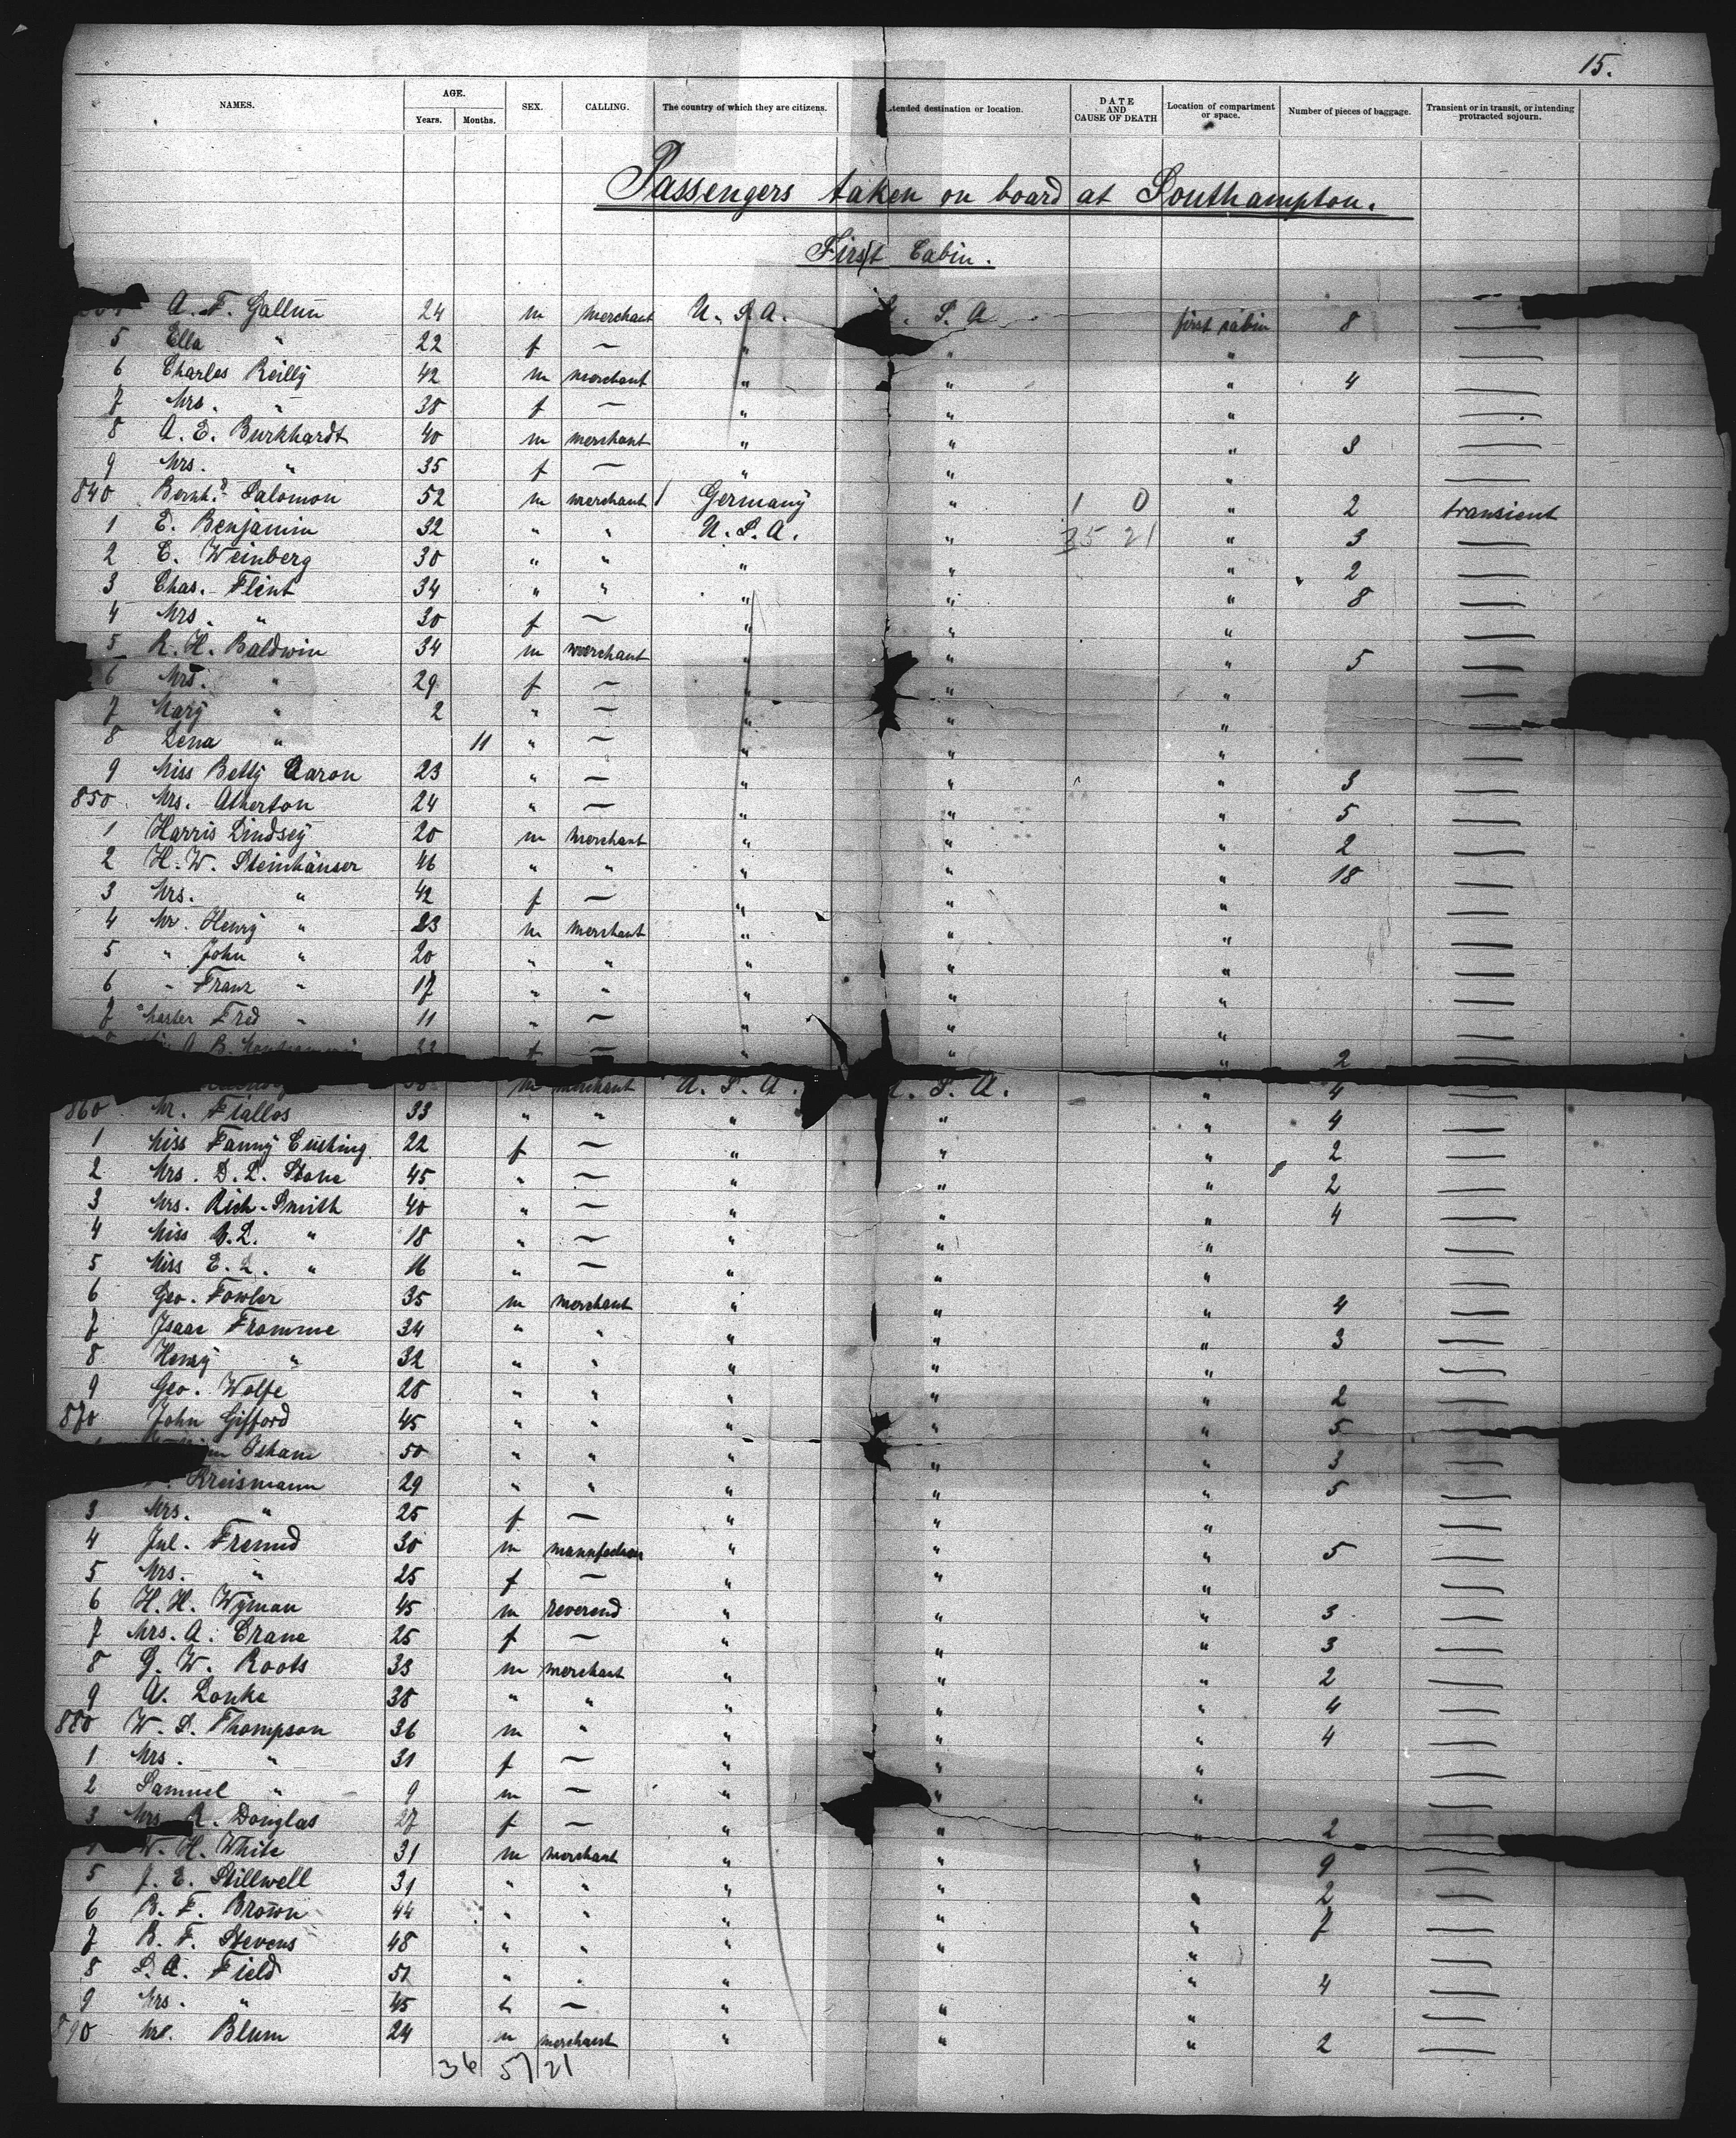 15.
NAMES. AGE. Years. Months. SEX. CALLING. The country of which they are citizens. tended destination or location. DATE AND CAUSE OF DEATH Location of compartment or space. Number of pieces of baggage. Transient or in transit, or intending protracted sojourn.
Passengers taken on board at Southampton.
First Cabin.
A. F. Gallun 24 m merchant U. S. A. S. A first cabin 8 —
5 Ella " 22 f — " " " —
6 Charles Reilly 42 m merchant " " " 4 —
7 Mrs. " 38 f — " " " —
8 A. E. Burkhardt 40 m merchant " " " 3 —
9 Mrs. " 35 f — " " " —
840 Bernh.d Salomon 52 m merchant 1 Germany " 1 0 " 2 transient
1 E. Benjamin 32 " " U. S. A. " 35 21 " 3 —
2 C. Weinberg 30 " " " " " 2 —
3 Chas. Flint 34 " " " " " 8 —
4 Mrs. " 30 f — " " " —
5 R. H. Baldwin 34 m merchant " " " 5 —
6 Mrs. " 29 f — " " " —
7 Mary " 2 " — " " " —
8 Lena " 11 " — " " " —
9 Miss Betty Aaron 23 " — " " " 3 —
850 Mrs. Atherton 24 " — " " " 5 —
1 Harris Lindsey 20 m merchant " " " 2 —
2 H. W. Steinhäuser 46 " " " " " 18 —
3 Mrs. " 42 f — " " " —
4 Mr. Henry " 23 m merchant " " " —
5 " John " 20 " " " " " —
6 " Franz " 17 " " " " " —
7 Master Fred " 11 " — " " " —
A. B. 33 f — " " " 2 —
m merchant U. S. A. S. A. " 4 —
860 Mr. Fiallos 33 " " " " " 4 —
1 Miss Fanny Cushing 22 f — " " " 2 —
2 Mrs. D. L. Stone 45 " — " " " 2 —
3 Mrs. Rich. Smith 40 " — " " " 4 —
4 Miss B. L. " 18 " — " " " —
5 Miss E. L. " 16 " — " " " —
6 Geo. Fowler 35 m merchant " " " 4 —
7 Isaac Fromme 34 " " " " " 3 —
8 Henry " 32 " " " " " —
9 Geo. Wolfe 28 " " " " " 2 —
870 John Gifford 45 " " " " " 5 —
Isham 50 " " " " " 3 —
Kreismann 29 " " " " " 5 —
3 Mrs. " 25 f — " " " —
4 Jul. Freund 30 m " " " 5 —
5 Mrs. " 25 f — " " " —
6 H. H. Wyman 45 m reverend " " " 3 —
7 Mrs. A. Crane 25 f — " " " 3 —
8 G. W. Roots 33 m merchant " " " 2 —
9 A. Lonke 38 " " " " " 4 —
880 W. S. Thompson 36 m " " " " 4 —
1 Mrs. " 31 f — " " " —
2 Samuel " 9 m — " " " —
3 Mrs R. Douglas 27 f — " " " 2 —
W. H. White 31 m merchant " " " 9 —
5 J. E. Stillwell 31 " " " " " 2 —
6 B. F. Brown 44 " " " " " 7 —
7 B. F. Stevens 48 " " " " " —
8 S. A. Field 51 " " " " " 4 —
9 Mrs. " 45 — " " " —
890 Blum 24 m merchant " " " 2 —
36 57 21